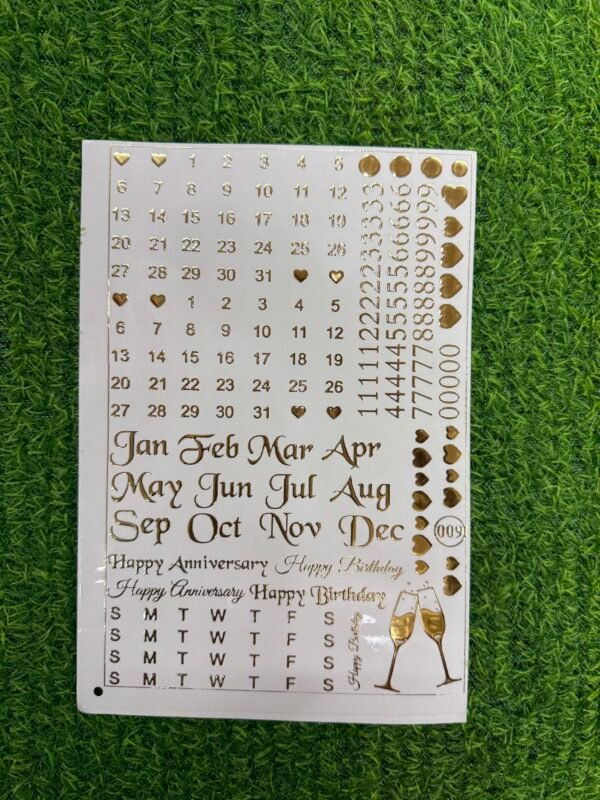 1 2 3 4 5
6 7 8 9 10 11 12
13 14 15 16 17 18 19
20 21 22 23 24 25 26
27 28 29 30 31
1 2 3 4 5
6 7 8 9 10 11 12
13 14 15 16 17 18 19
20 21 22 23 24 25 26
27 28 29 30 31
111112222233333
444445555566666
777778888899999
00000
Jan Feb Mar Apr
May Jun Jul Aug
Sep Oct Nov Dec
009
Happy Anniversary Happy Birthday
Happy Anniversary Happy Birthday
S M T W T F S
S M T W T F S
S M T W T F S
S M T W T F S
Happy Birthday